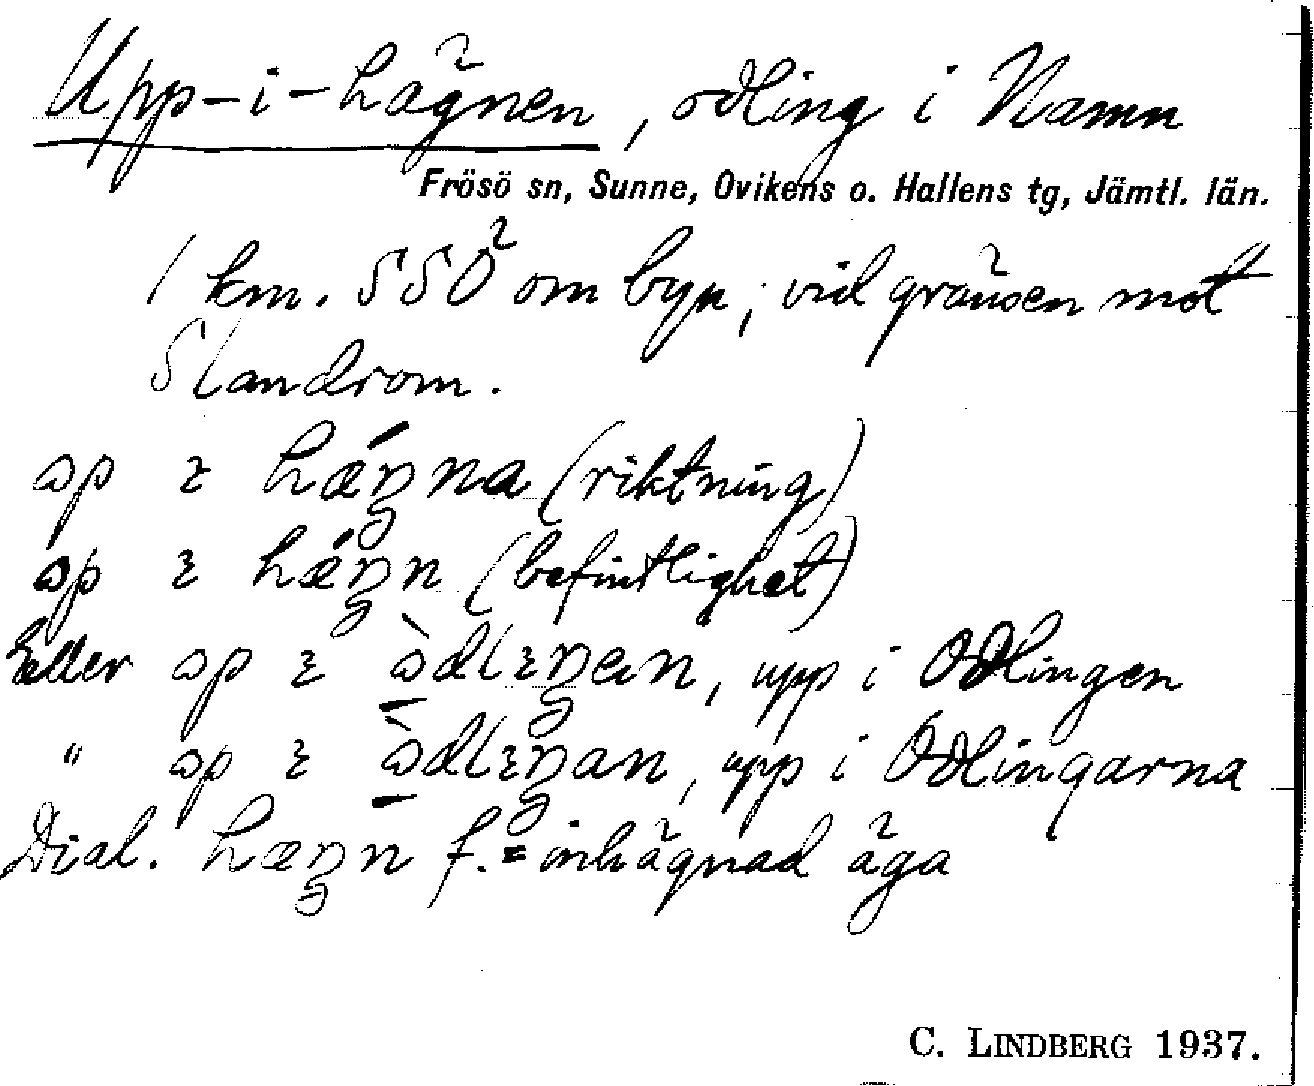 Upp-i-hägnen, odling i Namn
Frösö sn, Sunne, Ovikens o. Hallens tg, Jämtl. län.
1 km. SSÖ om byn; vid gränsen mot
Slandrom.
ɷp ɩ hǽŋna (riktning)
ɷp ɩ hǽŋn (befintlighet)
Eller ɷp ɩ ɷ̀dlɩŋen, upp i Odlingen
" ɷp ɩ ɷ̀dlɩŋan, upp i Odlingarna
Dial. hæŋn f. = inhägnad äga
C. LINDBERG 1937.